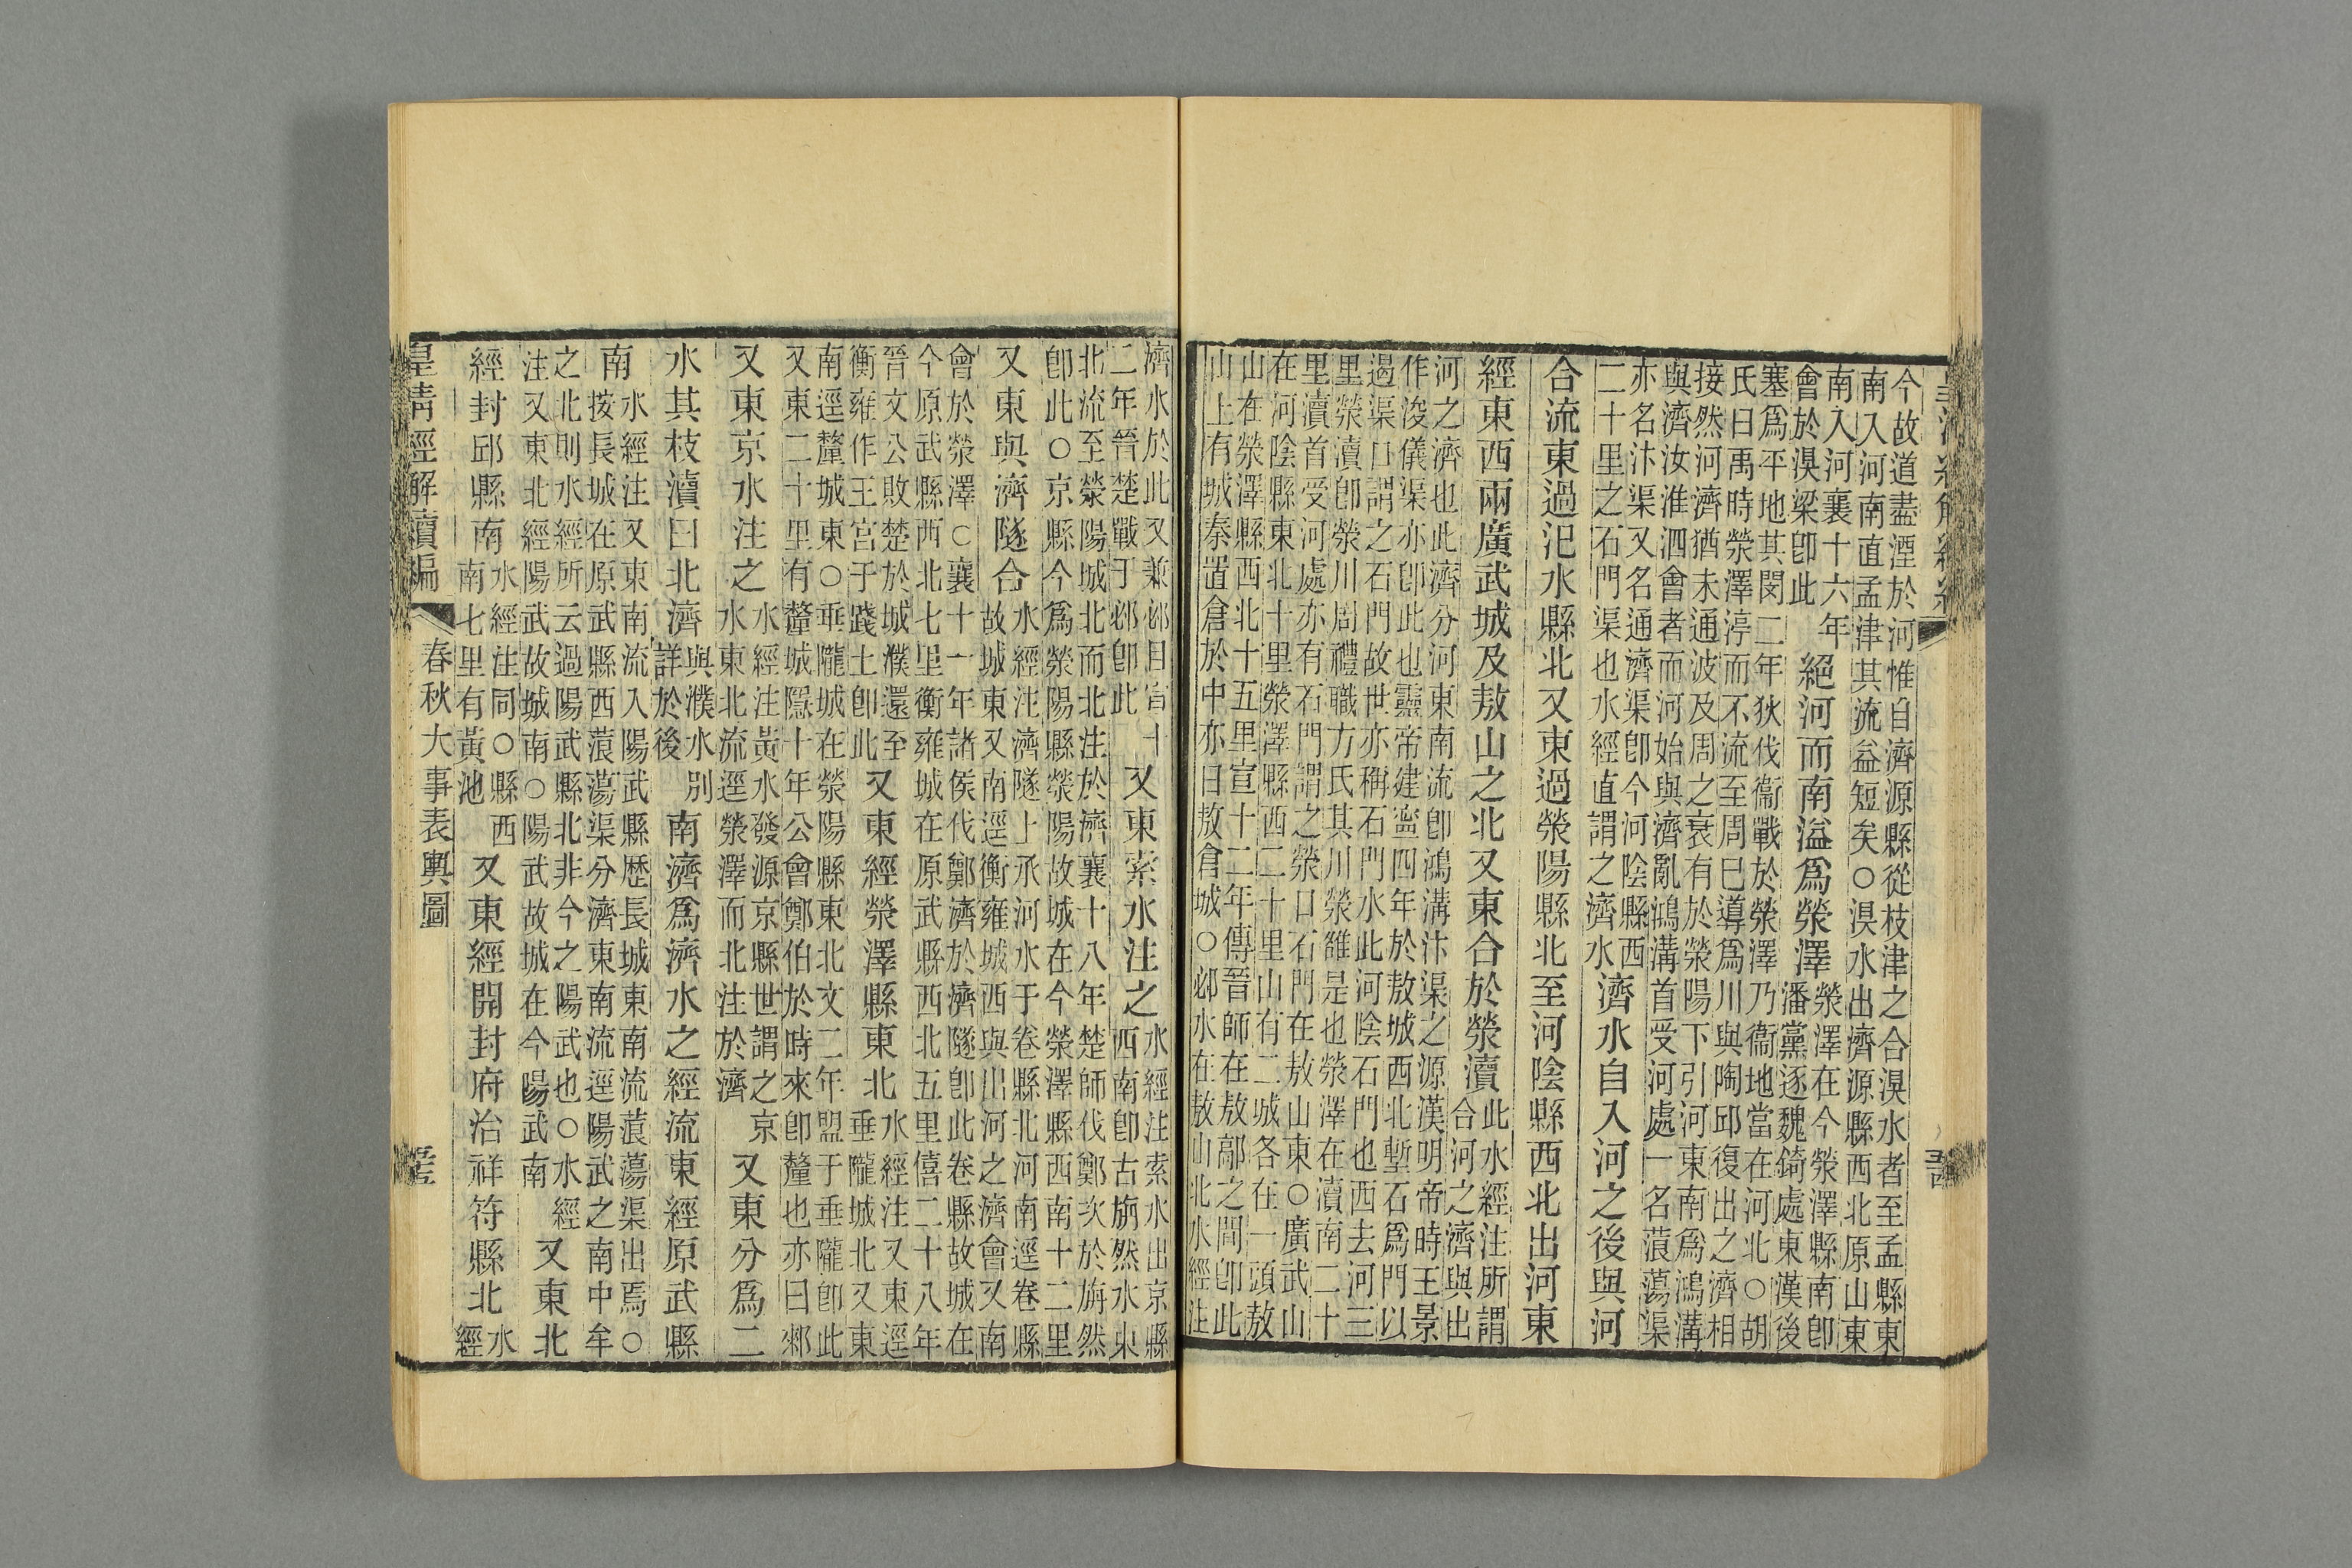 今故道盡湮於河惟自濟源縣從枝津之合湨水者至孟縣東
南入河南直孟津其流益短矣○湨水出濟源縣西北原山東
南入河襄十六年
會於湨梁卽此
絕河而南溢爲滎澤
滎澤在今滎澤縣南卽
潘黨逐魏錡處東漢後
塞爲平地其閔二年狄伐衞戰於滎澤乃衞地當在河北○胡
氏曰禹時滎澤渟而不流至周巳導爲川與陶邱復出之濟相
接然河濟猶未通波及周之衰有於滎陽下引河東南爲鴻溝
與濟汝淮泗會者而河始與濟亂鴻溝首受河處一名蒗蕩渠
亦名汴渠又名通濟渠卽今河陰縣西
二十里之石門渠也水經直謂之濟水
濟水自入河之後與河
合流東過汜水縣北又東過滎陽縣北至河陰縣西北出河東
經東西兩廣武城及敖山之北又東合於滎瀆
此水經注所謂
合河之濟與出
河之濟也此濟分河東南流卽鴻溝汴渠之源漢明帝時王景
作浚儀渠亦卽此也靈帝建寧四年於敖城西北壍石爲門以
遏渠口謂之石門故世亦稱石門水此河陰石門也西去河三
里滎瀆卽滎川周禮職方氏其川滎雒是也滎澤在瀆南二十
里瀆首受河處亦有石門謂之滎口石門在敖山東○廣武山
在河陰縣東北十里滎澤縣西二十里山有二城各在一頭敖
山在滎澤縣西北十五里宣十二年傳晉師在敖鄗之間卽此
山上有城秦置倉於中亦曰敖倉城○邲水在敖山北水經注
濟水於此又兼邲目宣十
二年晉楚戰于邲卽此
又東索水注之
水經注索水出京縣
西南卽古旃然水東
北流至滎陽城北而北注於濟襄十八年楚師伐鄭次於旃然
卽此○京縣今爲滎陽縣滎陽故城在今滎澤縣西南十二里
又東與濟隧合
水經注濟隧上承河水于卷縣北河南逕卷縣
故城東又南逕衡雍城西與出河之濟會又南
會於滎澤○襄十一年諸侯伐鄭濟於濟隧卽此卷縣故城在
今原武縣西北七里衡雍城在原武縣西北五里僖二十八年
晉文公敗楚於城濮還至
衡雍作王宮于踐土卽此
又東經滎澤縣東北
水經注又東逕
垂隴城北又東
南逕釐城東○垂隴城在滎陽縣東北文二年盟于垂隴卽此
又東二十里有釐城隱十年公會鄭伯於時來卽釐也亦曰郲
又東京水注之
水經注黃水發源京縣世謂之京
水東北流逕滎澤而北注於濟
又東分爲二
水其枝瀆曰北濟
與濮水別
詳於後
南濟爲濟水之經流東經原武縣
南
水經注又東南流入陽武縣歷長城東南流蒗蕩渠出焉○
按長城在原武縣西蒗蕩渠分濟東南流逕陽武之南中牟
之北則水經所云過陽武縣北非今之陽武也○水經
注又東北經陽武故城南○陽武故城在今陽武南
又東北
經封邱縣南
水經注同○縣西
南七里有黃池
又東經開封府治祥符縣北
水
經
皇清經解續編
春秋大事表輿圖